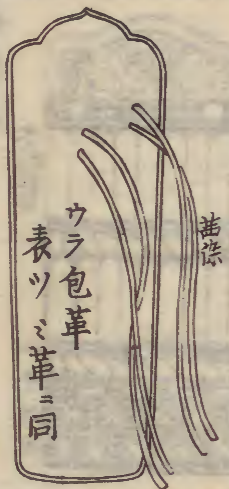 茜染
ウラ包革
表ツヽミ革ニ同